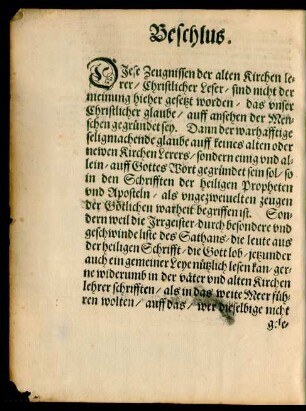 Beschlus.
DIese Zeugnissen der alten Kirchen le-
rer / Christlicher Leser / sind nicht der
meinung hieher gesetzt worden / das vnser
Christlicher glaube / auff ansehen der Men-
schen gegründet sey. Dann der warhafftige
seligmachende glaube auff keines alten oder
newen Kirchen Lerers / sondern einig vnd al-
lein / auff Gottes Wort gegründet sein sol / so
in den Schrifften der heiligen Propheten
vnd Aposteln / als vngezweiuelten zeugen
der Götlichen warheit begriffen ist. Son-
dern weil die Irrgeister / durch besondere vnd
geschwinde liste des Sathans / die leute aus
der heiligen Schrifft / die Gott lob / jetzunder
auch ein gemeiner Leye nützlich lesen kan / ger-
ne widerumb in der väter vnd alten Kirchen
lehrer schrifften / als in das weite Meer füh-
ren wolten / auff das / wer dieselbige nicht
gele-